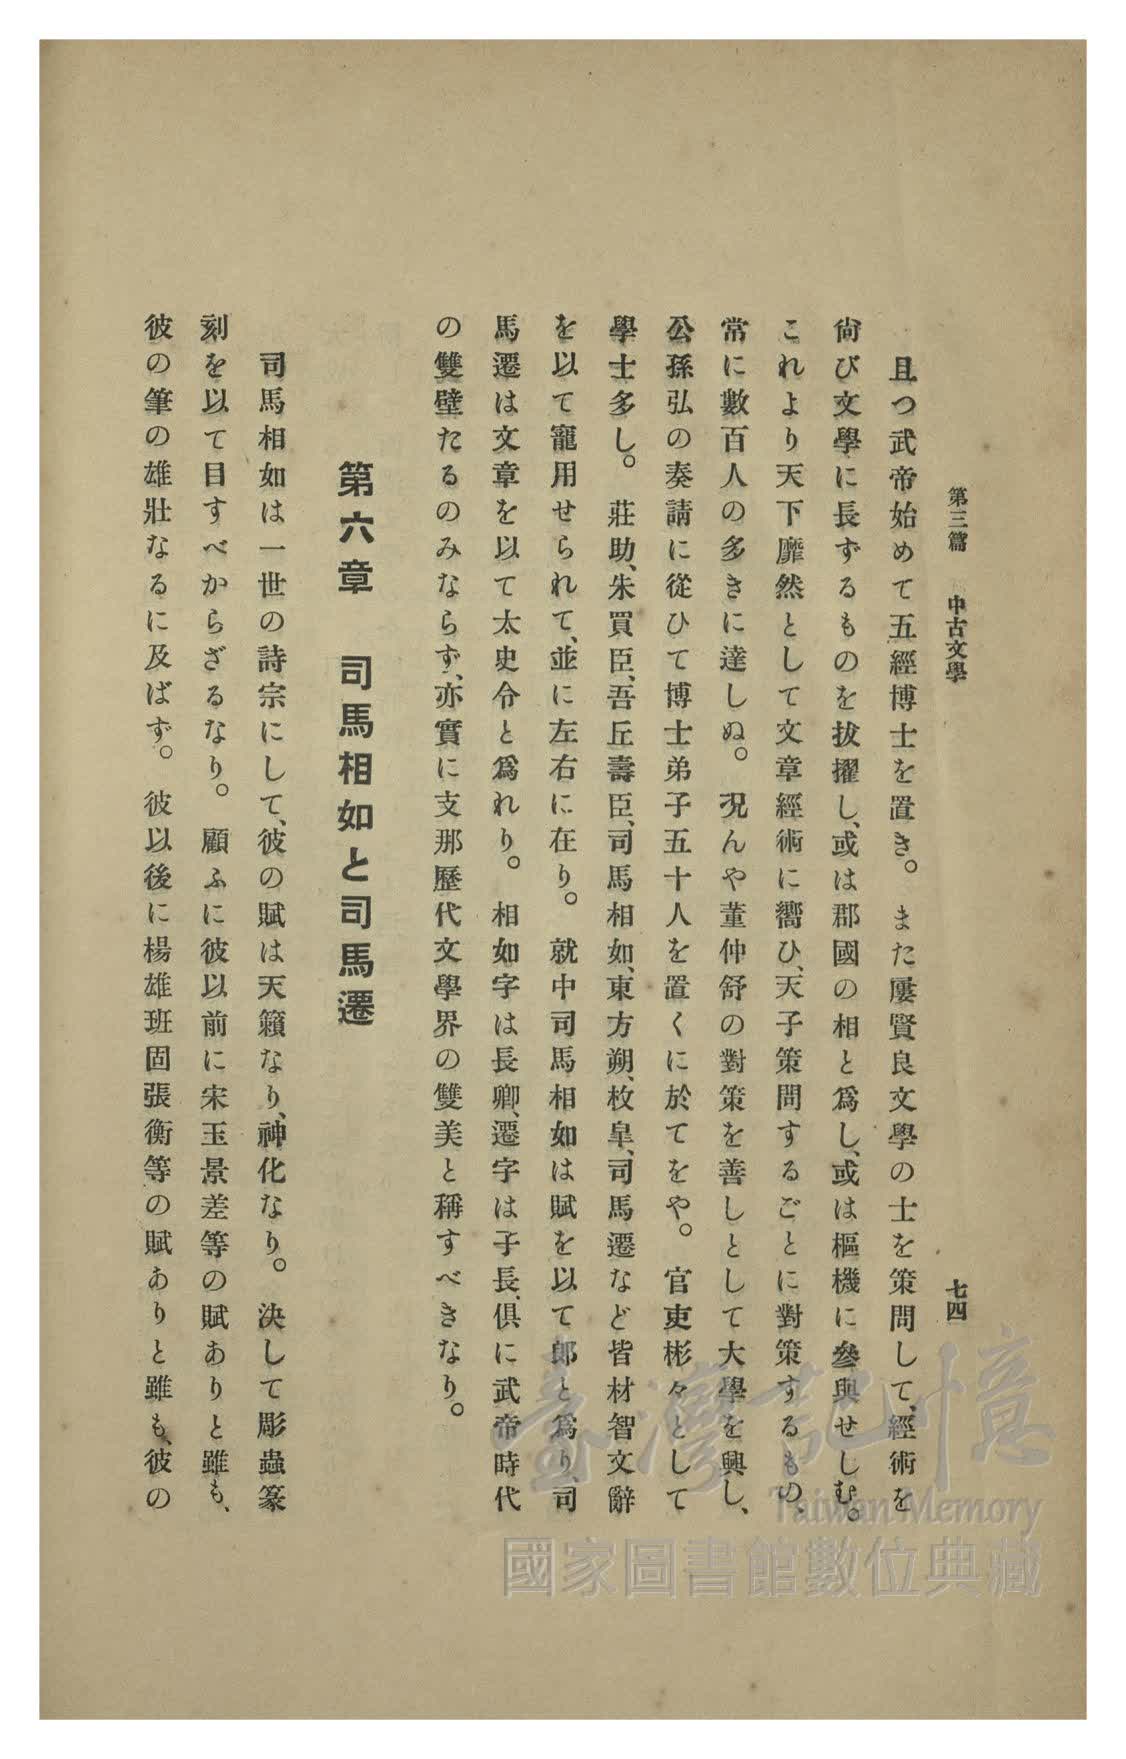 第三篇　中古文學　七四
且つ武帝始めて五經博士を置き。また屢賢良文學の士を策問して、經術を
尙び文學に長ずるものを拔擢し、或は郡國の相と爲し、或は樞機に參與せしむ。
これより天下靡然として文章經術に嚮ひ、天子策問するごとに對策するもの、
常に數百人の多きに達しぬ。況んや董仲舒の對策を善しとして大學を興し、
公孫弘の奏請に從ひて博士弟子五十人を置くに於てをや。官吏彬々として
學士多し。莊助、朱買臣、吾丘壽臣、司馬相如、東方朔、枚皐、司馬遷など皆材智文辭
を以て寵用せられて、並に左右に在り。就中司馬相如は賦を以て郎と爲り、司
馬遷は文章を以て太史令と爲れり。相如字は長卿、遷字は子長、俱に武帝時代
の雙璧たるのみならず、亦實に支那歷代文學界の雙美と稱すべきなり。
第六章　司馬相如と司馬遷
司馬相如は一世の詩宗にして、彼の賦は天籟なり、神化なり。決して彫蟲篆
刻を以て目すべからざるなり。顧ふに彼以前に宋玉景差等の賦ありと雖も、
彼の筆の雄壯なるに及ばず。彼以後に楊雄班固張衡等の賦ありと雖も、彼の
臺灣記憶
Taiwan Memory
國家圖書館數位典藏